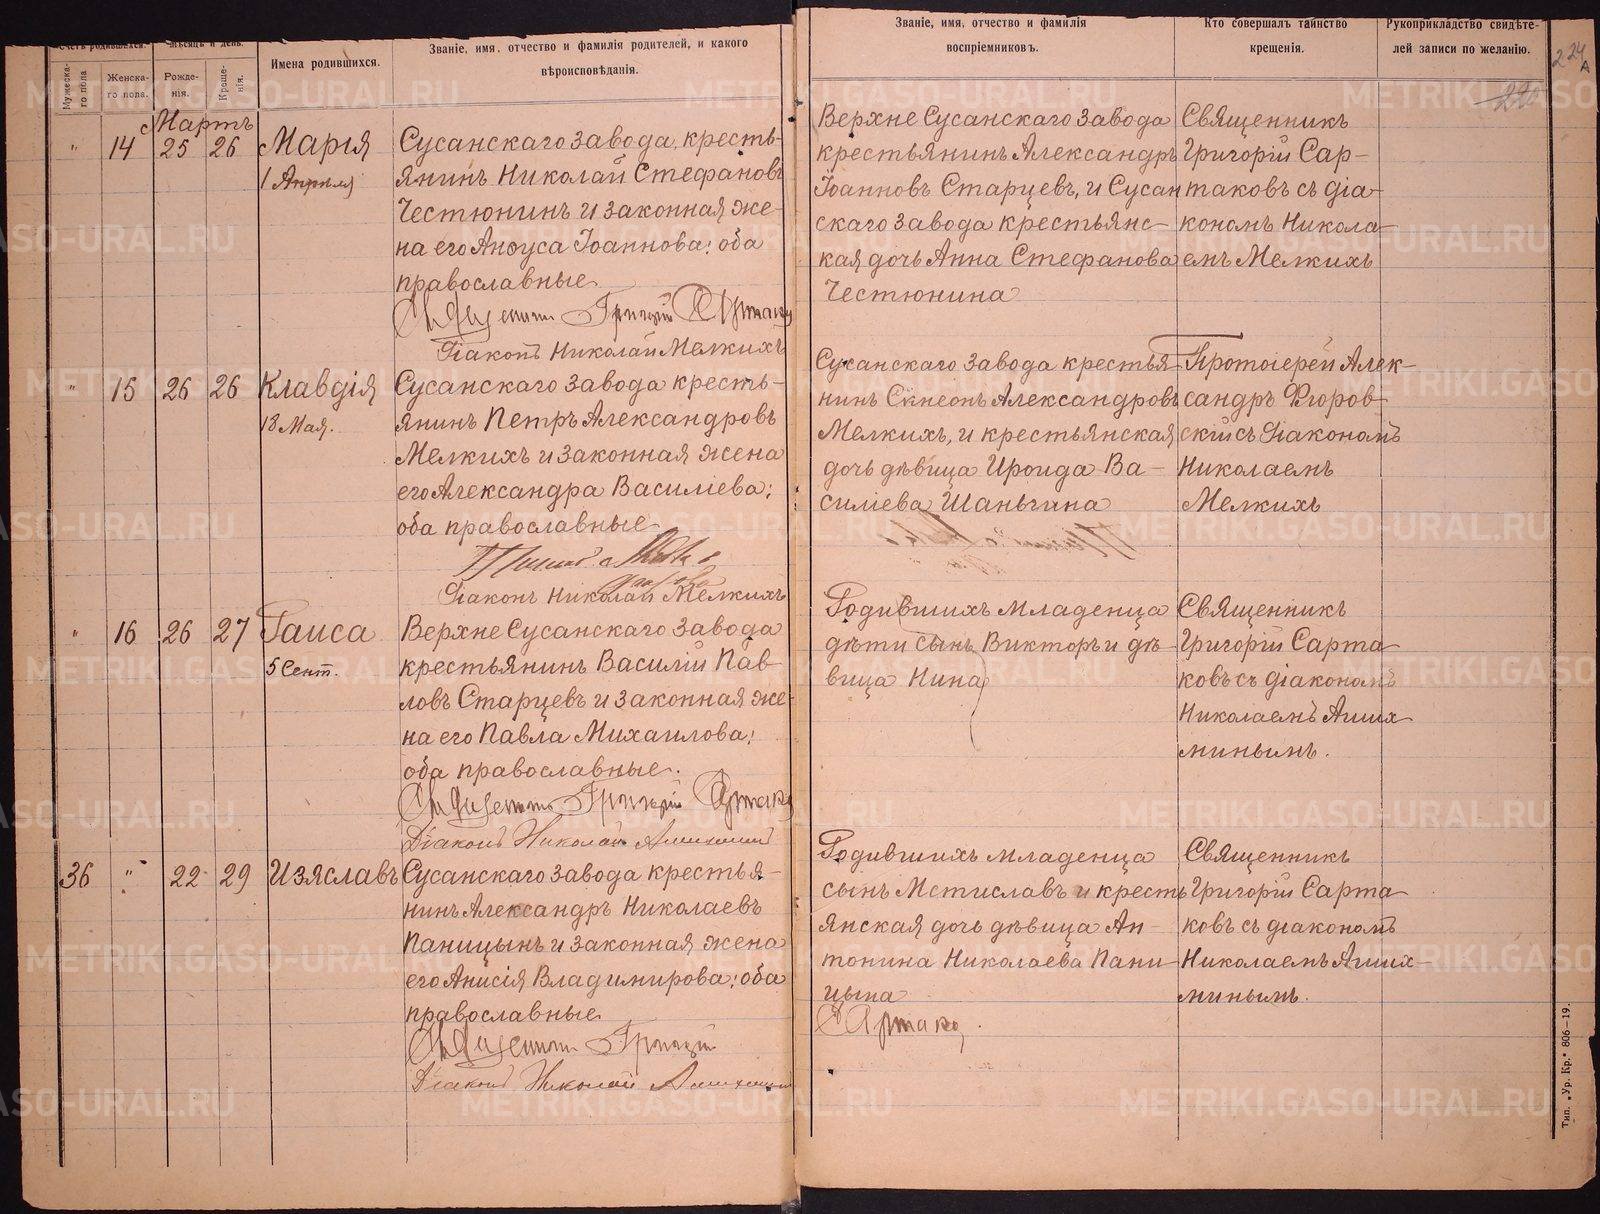 Счетъ родившихся.
Мѣсяцъ и день.
Имена родившихся.
Званіе, имя, отчество и фамилія родителей, и какого
вѣроисповѣданія.
Мужеска-
го пола
Женска-
го пола.
Рожде-
нія.
Креще-
нія.
Мартъ
" 14 25 26 Марія
1 Апрѣля
Сусанскаго завода, кресть-
янинъ Николай Стефановъ
Честюнинъ и законная же-
на его Анѳуса Іоаннова: оба
православные
Священникъ Григорій Сартаков
Діаконъ Николай Мелкихъ
" 15 26 26 Клавдія
13 Мая.
Сусанскаго завода кресть-
янинъ Петръ Александровъ
Мелкихъ и законная жена
его Александра Василіева:
оба православные
Діаконъ Николай Мелкихъ
" 16 26 27 Таиса
5 Сент.
Верхне Сусанскаго завода
крестьянинъ Василій Пав-
ловъ Старцевъ и законная же-
на его Павла Михаилова:
оба православные.
Священникъ Григорій Сартаков
Діаконъ Николай Алихминъ
36 " 22 29 Изяславъ
Сусанскаго завода крестья-
нинъ Александръ Николаевъ
Паницынъ и законная жена
его Анисія Владимирова: оба
православные
Священникъ Григорій
Діаконъ Николай
Званіе, имя, отчество и фамилія
воспріемниковъ.
Кто совершалъ таинство
крещенія.
Рукоприкладство свидѣте-
лей записи по желанію.
224
А
220
Верхне Сусанскаго завода
крестьянинъ Александръ
Іоанновъ Старцевъ, и Сусан
скаго завода крестьянс-
кая дочь Анна Стефанова
Честюнина
Священникъ
Григорій Сар-
таковъ съ діа-
кономъ Никола-
емъ Мелкихъ
Сусанскаго завода крестья-
нинъ Симеонъ Александровъ
Мелкихъ, и крестьянская
дочь дѣвица Ироида Ва-
силіева Шаньгина
Протоіерей Алек-
сандръ Флоров-
скій съ діакономъ
Николаемъ
Мелкихъ
Родившихъ младенца
дѣти сынъ Викторъ и дѣ-
вица Нина
Священникъ
Григорій Сарта-
ковъ съ діакономъ
Николаемъ
миньімъ.
Родившихъ младенца
сынъ Мстиславъ и кресть
янская дочь дѣвица Ан-
тонина Николаева Пани-
цына
Сартаков.
Священникъ
Григорій Сарта-
ковъ съ діакономъ
Николаемъ
минымъ.
Тип. „Ур. Кр." 806—19.
METRIKI.GASO-URAL.RU